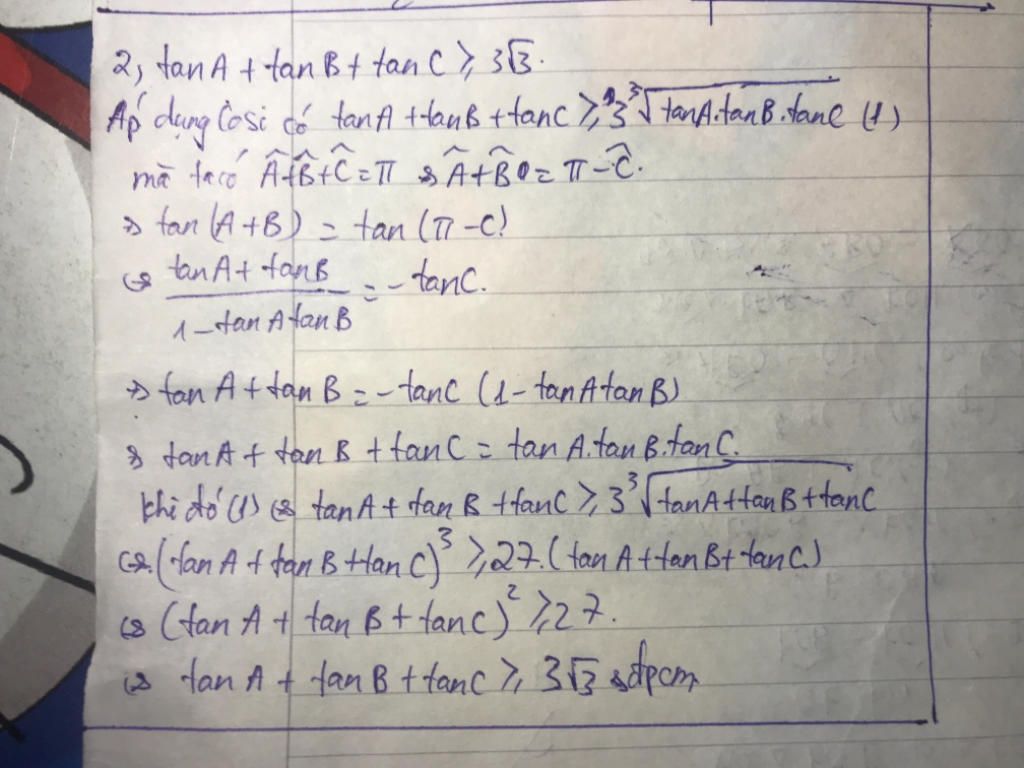 2, tanA + tanB + tanC ⩾ 3√3.
Áp dụng Cosi có tanA + tanB + tanC ⩾ 3∛(tanA.tanB.tanC) (1)
mà ta có Â+B̂+Ĉ = π ⇒ Â+B̂ = π - Ĉ.
⇒ tan(A+B) = tan(π-C)
⇔ (tanA + tanB)/(1 - tanAtanB) = -tanC.
⇒ tanA + tanB = -tanC (1 - tanAtanB)
⇒ tanA + tanB + tanC = tanA.tanB.tanC.
khi đó (1) ⇔ tanA + tanB + tanC ⩾ 3∛(tanA+tanB+tanC)
⇔ (tanA + tanB + tanC)³ ⩾ 27.(tanA + tanB + tanC)
⇔ (tanA + tanB + tanC)² ⩾ 27.
⇔ tanA + tanB + tanC ⩾ 3√3 ⇒ đpcm